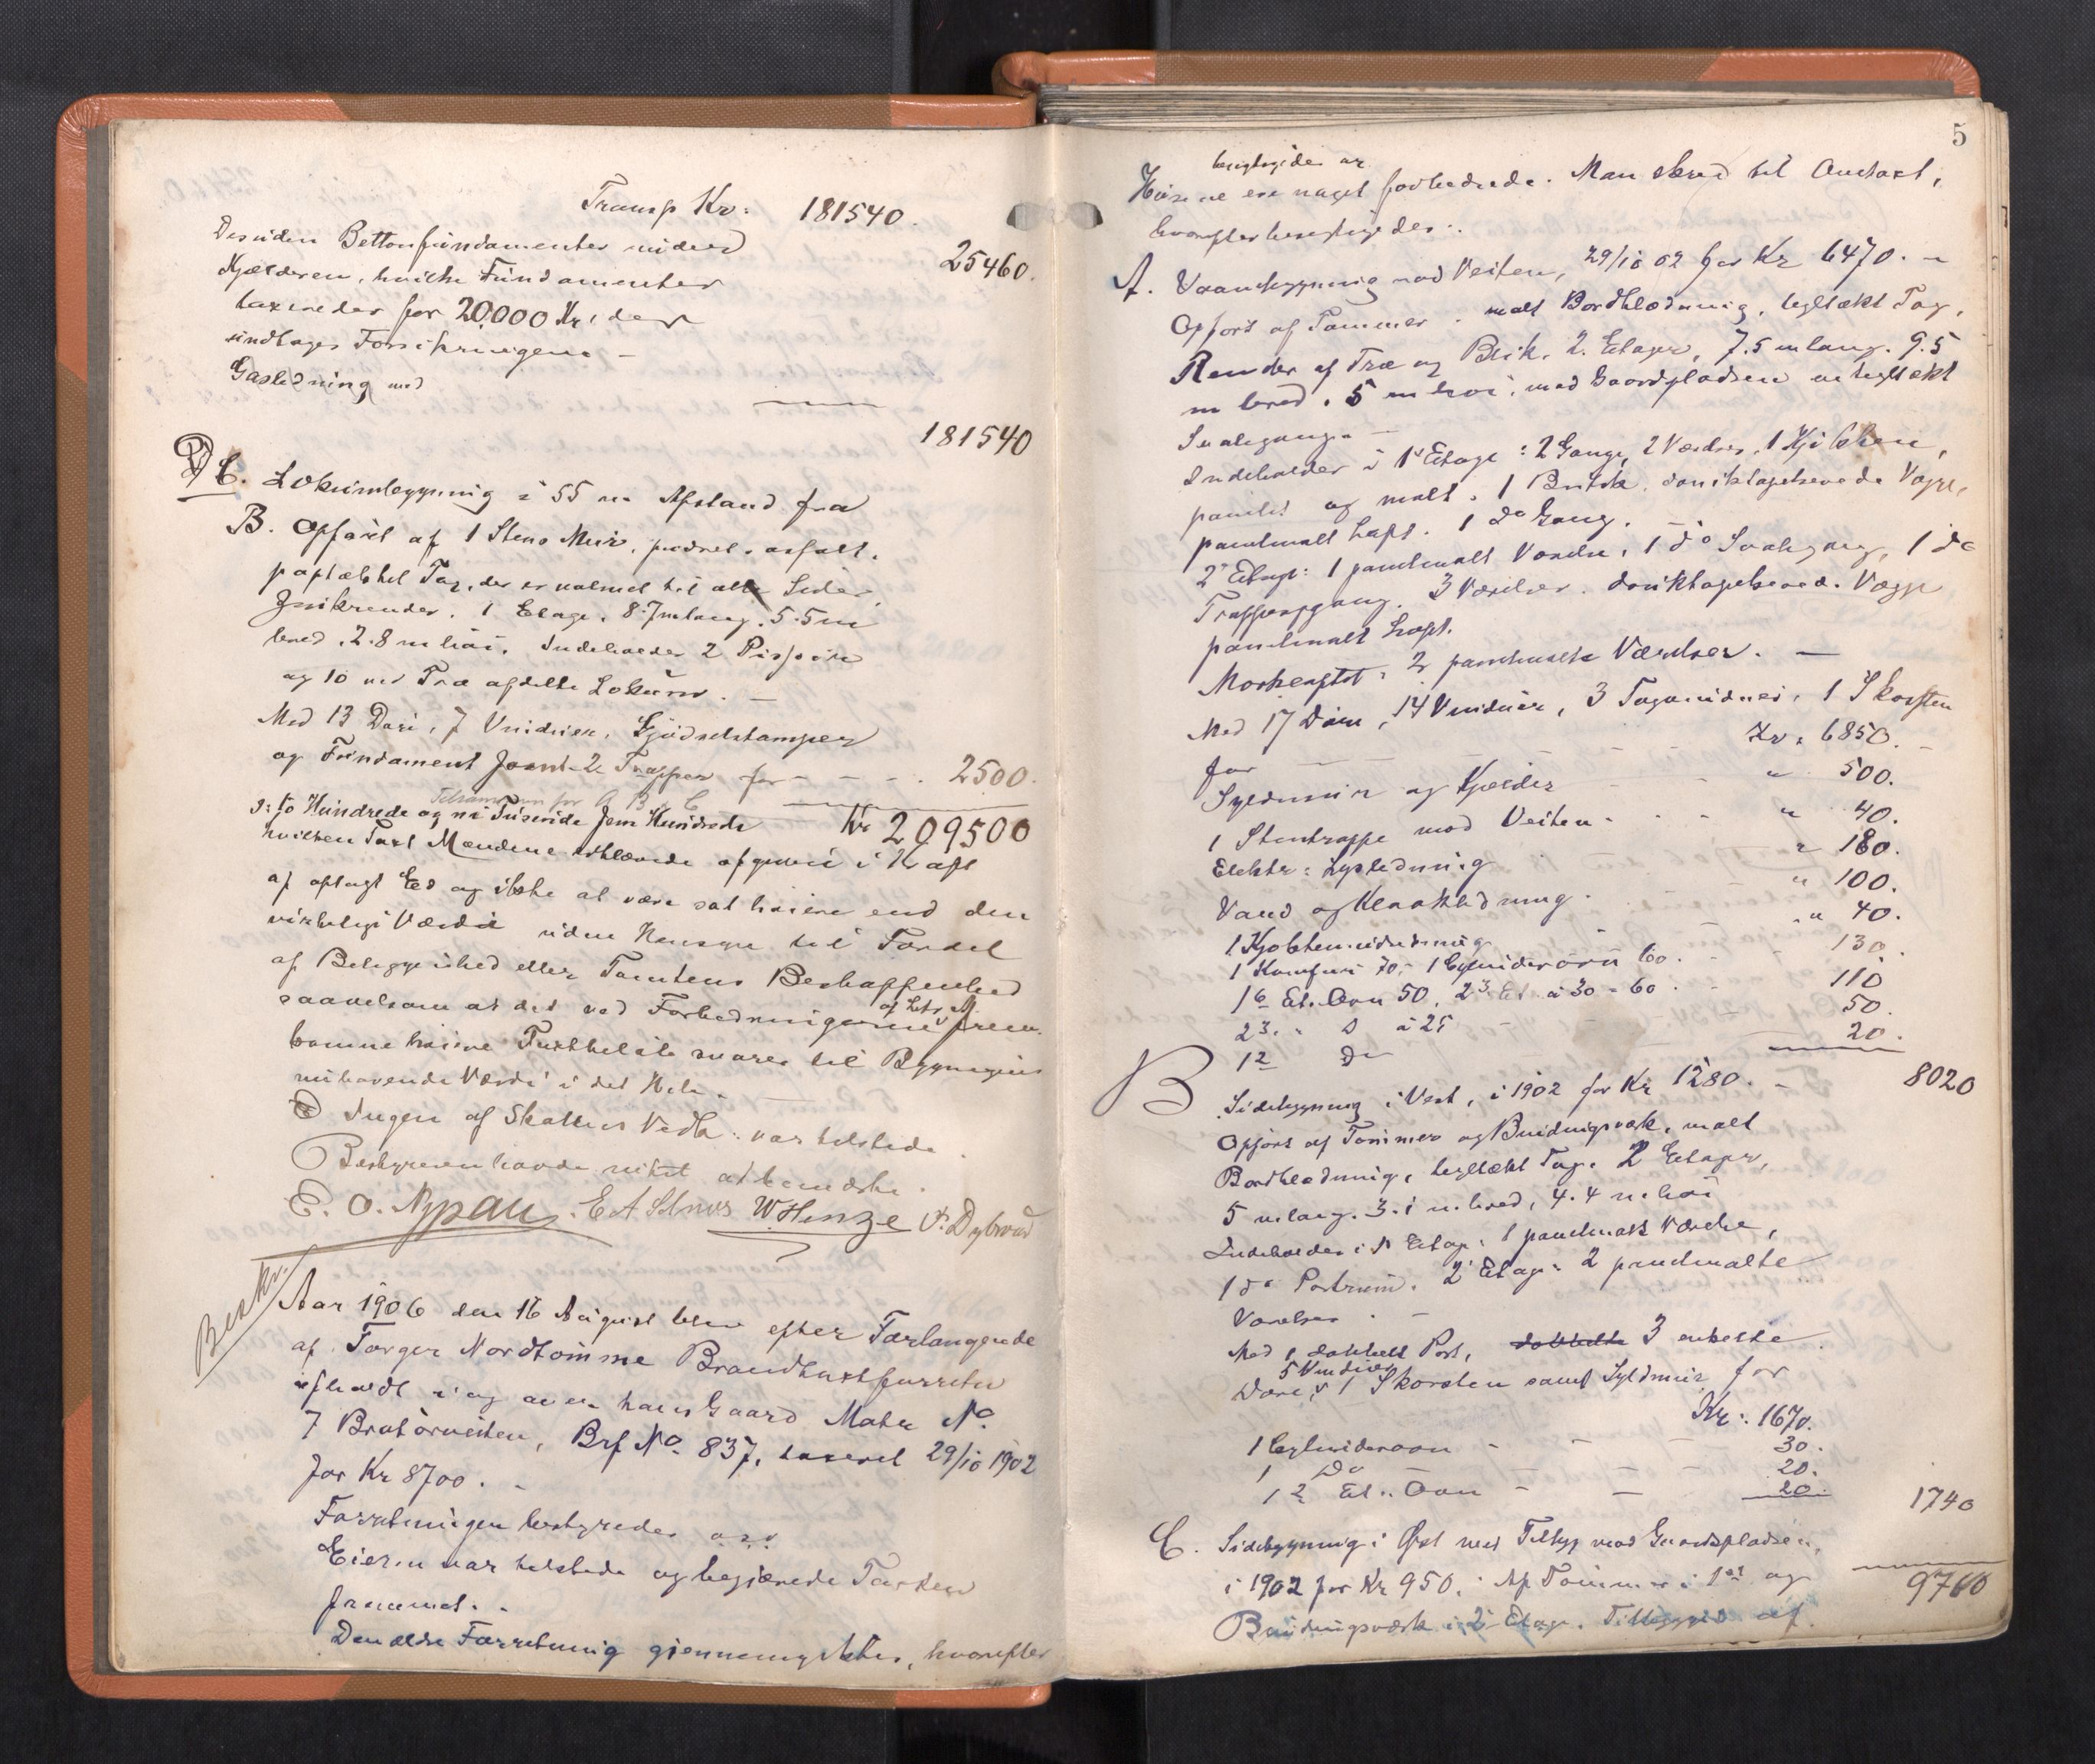 Transp Kr: 181540.
Desuden Bettonfundamenter under
25460.
Kjælderen, hvilke Fundamenter
taxeredes for 20.000 Kr, der
undtages Forsikringen –
Gasledning med
181540
C. Lokumbygning i 55 m Afstand fra
B. Opført af 1 Stens Mur, pudset, asfalt.
paptækket Tag, der er valmet til alle Sider,
Jernkrender. 1 Etage. 8.7 m lang. 5.5 m
bred. 2.8 m høi. Indeholder 2 Pissoir
og 10 ved Træ afdelte Lokumer. –
Med 13 Døre, 7 Vinduer, Gjødselstamper
og Fundament samt 2 Trapper for - - - 2500.
Tilsammen for A B & C
d: to Hundrede og ni Tusinde fem Hundrede Kr 209500
hvilken Taxt Mændene erklærede afgiven i Kraft
af aflagt Ed og ikke at være sat høiere end den
virkelige Værdi uden Hensyn til Fordel
af Beliggenhed eller Tomtens Beskaffenhed
saavelsom at det ved Forbedringerne af Hts frem-
komne høiere Taxtbeløb svarer til Bygningens
nuhavende Værdi i det Hele. –
Ingen af Skattens Vedk: var tilstede.
Bestyreren havde intet at bemærke.
E. O. Nypan. W Hinze P. Dybvad
Beskr.
Aar 1906 den 16 August blev efter Forlangende
af Torger Nordtømme Brandtaxtforretn
afholdt i og over hans Gaard Matr No.
7 Bratørveiten, Brf No. 837, taxeret 29/10 1902
for Kr 8700. –
Forretningen bestyredes o.s.v.
Eieren var tilstede og begjærede Taxten
fremmet. –
Den ældre Forretning gjennemgikkes, hvorefter
5
besigtigedes og
Husene ere noget forbedrede. Man skred til Omtaxt,
hvorefter besigtigedes:
A. Vaanbygning mod Veiten, 29/10 02 for Kr 6470. –
Opført af Tømmer, malt Bordklædning, tegltækt Tag,
Render af Træ og Blik. 2. Etager, 7.5 m lang. 9.5
m bred. 5 m høi, mod Gaardspladsen en tegltækt
Svalegang. –
Indeholder i 1e Etage: 2 Gange, 2 Værelser, 1 Kjøkken,
panelt og malt. 1 Butik, stoniktapetserede Vægge,
panelmalt Loft. 1 do Gang. –
2e Etage: 1 panelmalt Værelse, 1 do Svalegang, 1 do
Trappeopgang. 3 Værelser. stoniktapetserede Vægge
panelmalt Loft.
Mørkeloftet: 2 panelmalte Værelser. –
Med 17 Døre, 14 Vinduer, 3 Tagvinduer, 1 Skorsten
for – – – Kr. 6850. –
Syldmur og Kjælder – " 500.
1 Stentrappe mod Veiten - - - " 40.
Elektr: Lysledning " 180.
Vand og Kloakledning. " 100.
1 Kjøkkenindretning " 40.
1 Komfur 70,- 1 Cylinderovn 60. 130.
1 6 Et. Ovn 50. 2 3 Et à 30 - 60. 110
2 3. " D à 25 50.
1 2 Do 20.
8020
B Sidebygning i Vest, i 1902 for Kr 1280. –
Opført af Tømmer og Bindingsværk, malt
Bordklædning, tegltækt Tag. 2 Etager,
5 m lang. 3.1 m. bred, 4.4 m. høi
Indeholder i 1e Etage: 1 panelmalt Værelse,
1 do Portrum. 2e Etage: 2 panelmalte
Værelser. –
Med 1 dobbelt Port, dobbelte 3 enkelte
5 Vinduer
Døre, 1 Skorsten samt Syldmur for
Kr: 1670.
1 Cylinderovn - - - 30.
1 Do - - - 20.
1 2 Et. Ovn - - 20.
1740
C. Sidebygning i Øst med Tilbyg mod Gaardspladsen,
i 1902 for Kr 950. Af Tømmer i 1ste og
9760
Bindingsværk i 2e Etage. Tilbygget af